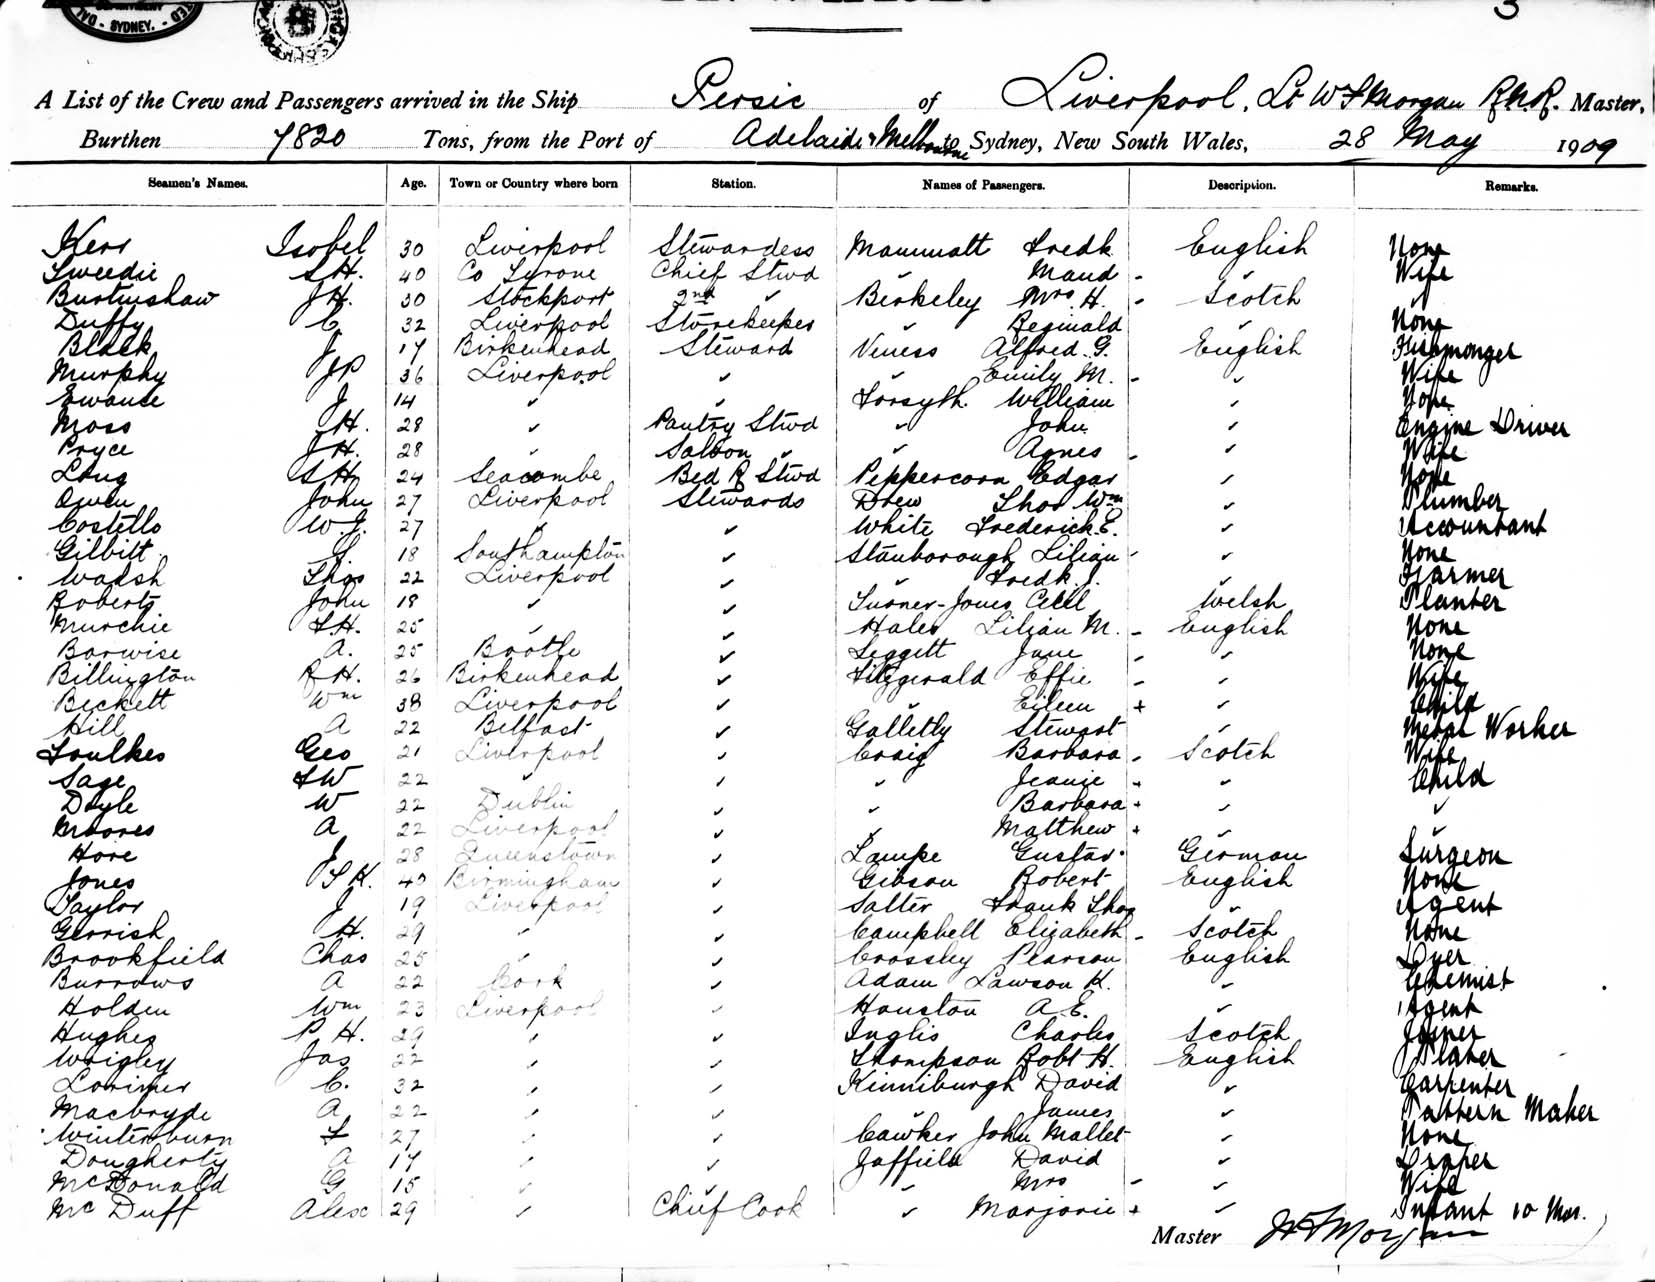 SYDNEY.
3
A List of the Crew and Passengers arrived in the Ship Persic of Liverpool, Lt W F Morgan R.N.R. Master,
Burthen 7820 Tons, from the Port of Adelaide & Melbourne to Sydney, New South Wales, 28 May 1909
Seamen's Names. Age. Town or Country where born Station. Names of Passengers. Description. Remarks.
Kerr Isobel 30 Liverpool Stewardess Mammatt Fredk English None
Tweedie S.H. 40 Co Tyrone Chief Stwd " Maud - " Wife
Burtinshaw J.H. 30 Stockport 2nd " Berkeley Mrs H. - Scotch "
Duffy C 32 Liverpool Storekeeper " Reginald " None
Black J 17 Birkenhead Steward Viness Alfred G. English Fishmonger
Murphy Jep 36 Liverpool " " Emily M. - " Wife
Ewause J 14 " " Forsyth William " None
Moss J H. 28 " Pantry Stwd " John " Engine Driver
Pryce J H. 28 " Saloon " " Agnes - " Wife
Long S H. 24 Seacombe Bed R Stwd Peppercorn Edgar " None
Owen John 27 Liverpool Stewards Drew Thos Wm " Plumber
Costello W J. 27 " " White Frederick E. " Accountant
Gilbitt G 18 Southampton " Stanborough Lilian - " None
Walsh Thos 22 Liverpool " " Fredk. J. " Farmer
Roberts John 18 " " Turner-Jones Cecil Welsh Planter
Murchie F.H. 25 " " Hales Lilian M. - English None
Barwise A. 25 Bootle " Leggett Jane - " None
Billington R H. 26 Birkenhead " Fitzgerald Effie - " Wife
Beckett Wm 38 Liverpool " " Eileen + " Child
Hill A 22 Belfast " Galletly Stewart " Metal Worker
Foulkes Geo 21 Liverpool " Craig Barbara - Scotch Wife
Sage F W 22 " " " Jeanie + " Child
Doyle W 22 Dublin " " Barbara + " "
Moores A 22 Liverpool " " Matthew + " "
Hore J 28 Queenstown " Lampe Gustav German Surgeon
Jones J S H. 40 Birmingham " Gibson Robert English None
Taylor J 19 Liverpool " Salter Frank Thos " Agent
Gerrish H. 29 " " Campbell Elizabeth - Scotch None
Brookfield Chas 25 " " Crossley Pearson English Dyer
Burrows A 22 Cork " Adam Lawson H. " Chemist
Holden Wm 23 Liverpool " Houston A.E. " Agent
Hughes P H. 29 " " Inglis Charles Scotch Joiner
Wrigley Jas 22 " " Thompson Robt H. English Plater
Lorimer C. 32 " " Kinniburgh David " Carpenter
Macbryde A 22 " " James " Pattern Maker
Winterburn F 27 " " Cawker John Mallet " None
Dougherty A 17 " " Jaffield David " Draper
McDonald G 15 " " " Mrs - " Wife
McDuff Alex 29 " Chief Cook " Marjorie + " Infant 10 Mos.
Master W F Morgan